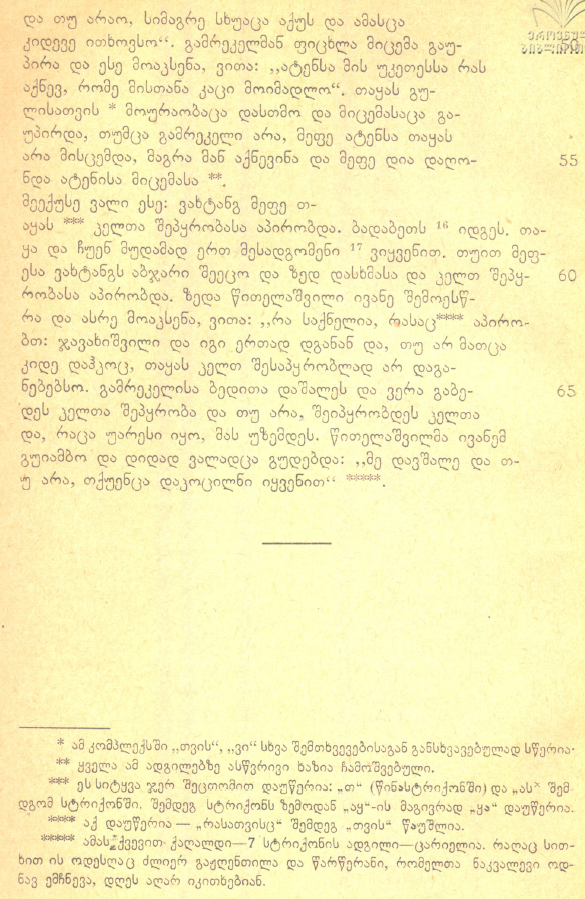 და თუ არაო, სიმაგრე სხუაცა აქუს და ამასცა
კიდევე ითხოვსო“. გამრეკელმან ფიცხლა მიცემა გაუ-
პირა და ესე მოაკსენა, ვითა: „ატენსა მის უკეთესსა რას
აქნევ, რომე მისთანა კაცი მოიმადლო“. თაყას გუ-
ლისათვის * მოურაობაცა დასთმო და მიცემასაცა გა-
უპირდა, თუმცა გამრეკელი არა, მეფე ატენსა თაყას
არა მისცემდა, მაგრა მან აქნევინა და მეფე დია დაღო-
55
ნდა ატენისა მიცემასა **.
მეექუსე ვალი ესე: ვახტანგ მეფე თ-
აყას *** კელთა შეპყრობასა აპირობდა. ბადაბეთს 16 იდგეს. თა-
ყა და ჩუენ მუდამად ერთ მესადგომენი 17 ვიყვენით. თუით მეფ-
ესა ვახტანგს აბჯარი შეეცო და ზედ დასხმასა და კელთ შეპყ-
60
რობასა აპირობდა. ზედა წითელაშვილი ივანე შემოესწ-
რა და ასრე მოაკსენა, ვითა: „რა საქნელია, რასაც**** აპირო-
ბთ: ჯავახიშვილი და იგი ერთად დგანან და, თუ არ მათცა
კიდე დაჰკოც, თაყას კელთ შესაპყრობლად არ დაგა-
ნებებსო. გამრეკელისა ბედითა დაშალეს და ვერა გაბე-
65
დეს კელთა შეპყრობა და თუ არა, შეიპყრობდეს კელთა
და, რაცა უარესი იყო, მას უზემდეს. წითელაშვილმა ივანემ
გუიამბო და დიდად ვალადცა გუდებდა: „მე დავშალე და თ-
უ არა, თქუენცა დაკოცილნი იყვენით“ *****.
* ამ კომპლექსში „თვის“, „ვი“ სხვა შემთხვევებისაგან განსხვავებულად სწერია.
** ყველა ამ ადგილებზე ასწვრივი ხაზია ჩამოშვებული.
*** ეს სიტყვა ჯერ შეცთომით დაუწერია: „თ“ (წინასტრიქონში) და „ას“ შემ-
დგომ სტრიქონში. შემდეგ სტრიქონს ზემოდან „აყ“-ის მაგივრად „ყა“ დაუწერია.
**** აქ დაუწერია — „რასათვისც“ შემდეგ „თვის“ წაუშლია.
***** ამას ქვევით ქაღალდი—7 სტრიქონის ადგილი—ცარიელია. რაღაც სით-
ხით ის ოდესღაც ძლიერ გაჟღენთილა და წარწერანი, რომელთა ნაკვალევი ოდ-
ნავ ემჩნევა, დღეს აღარ იკითხებიან.